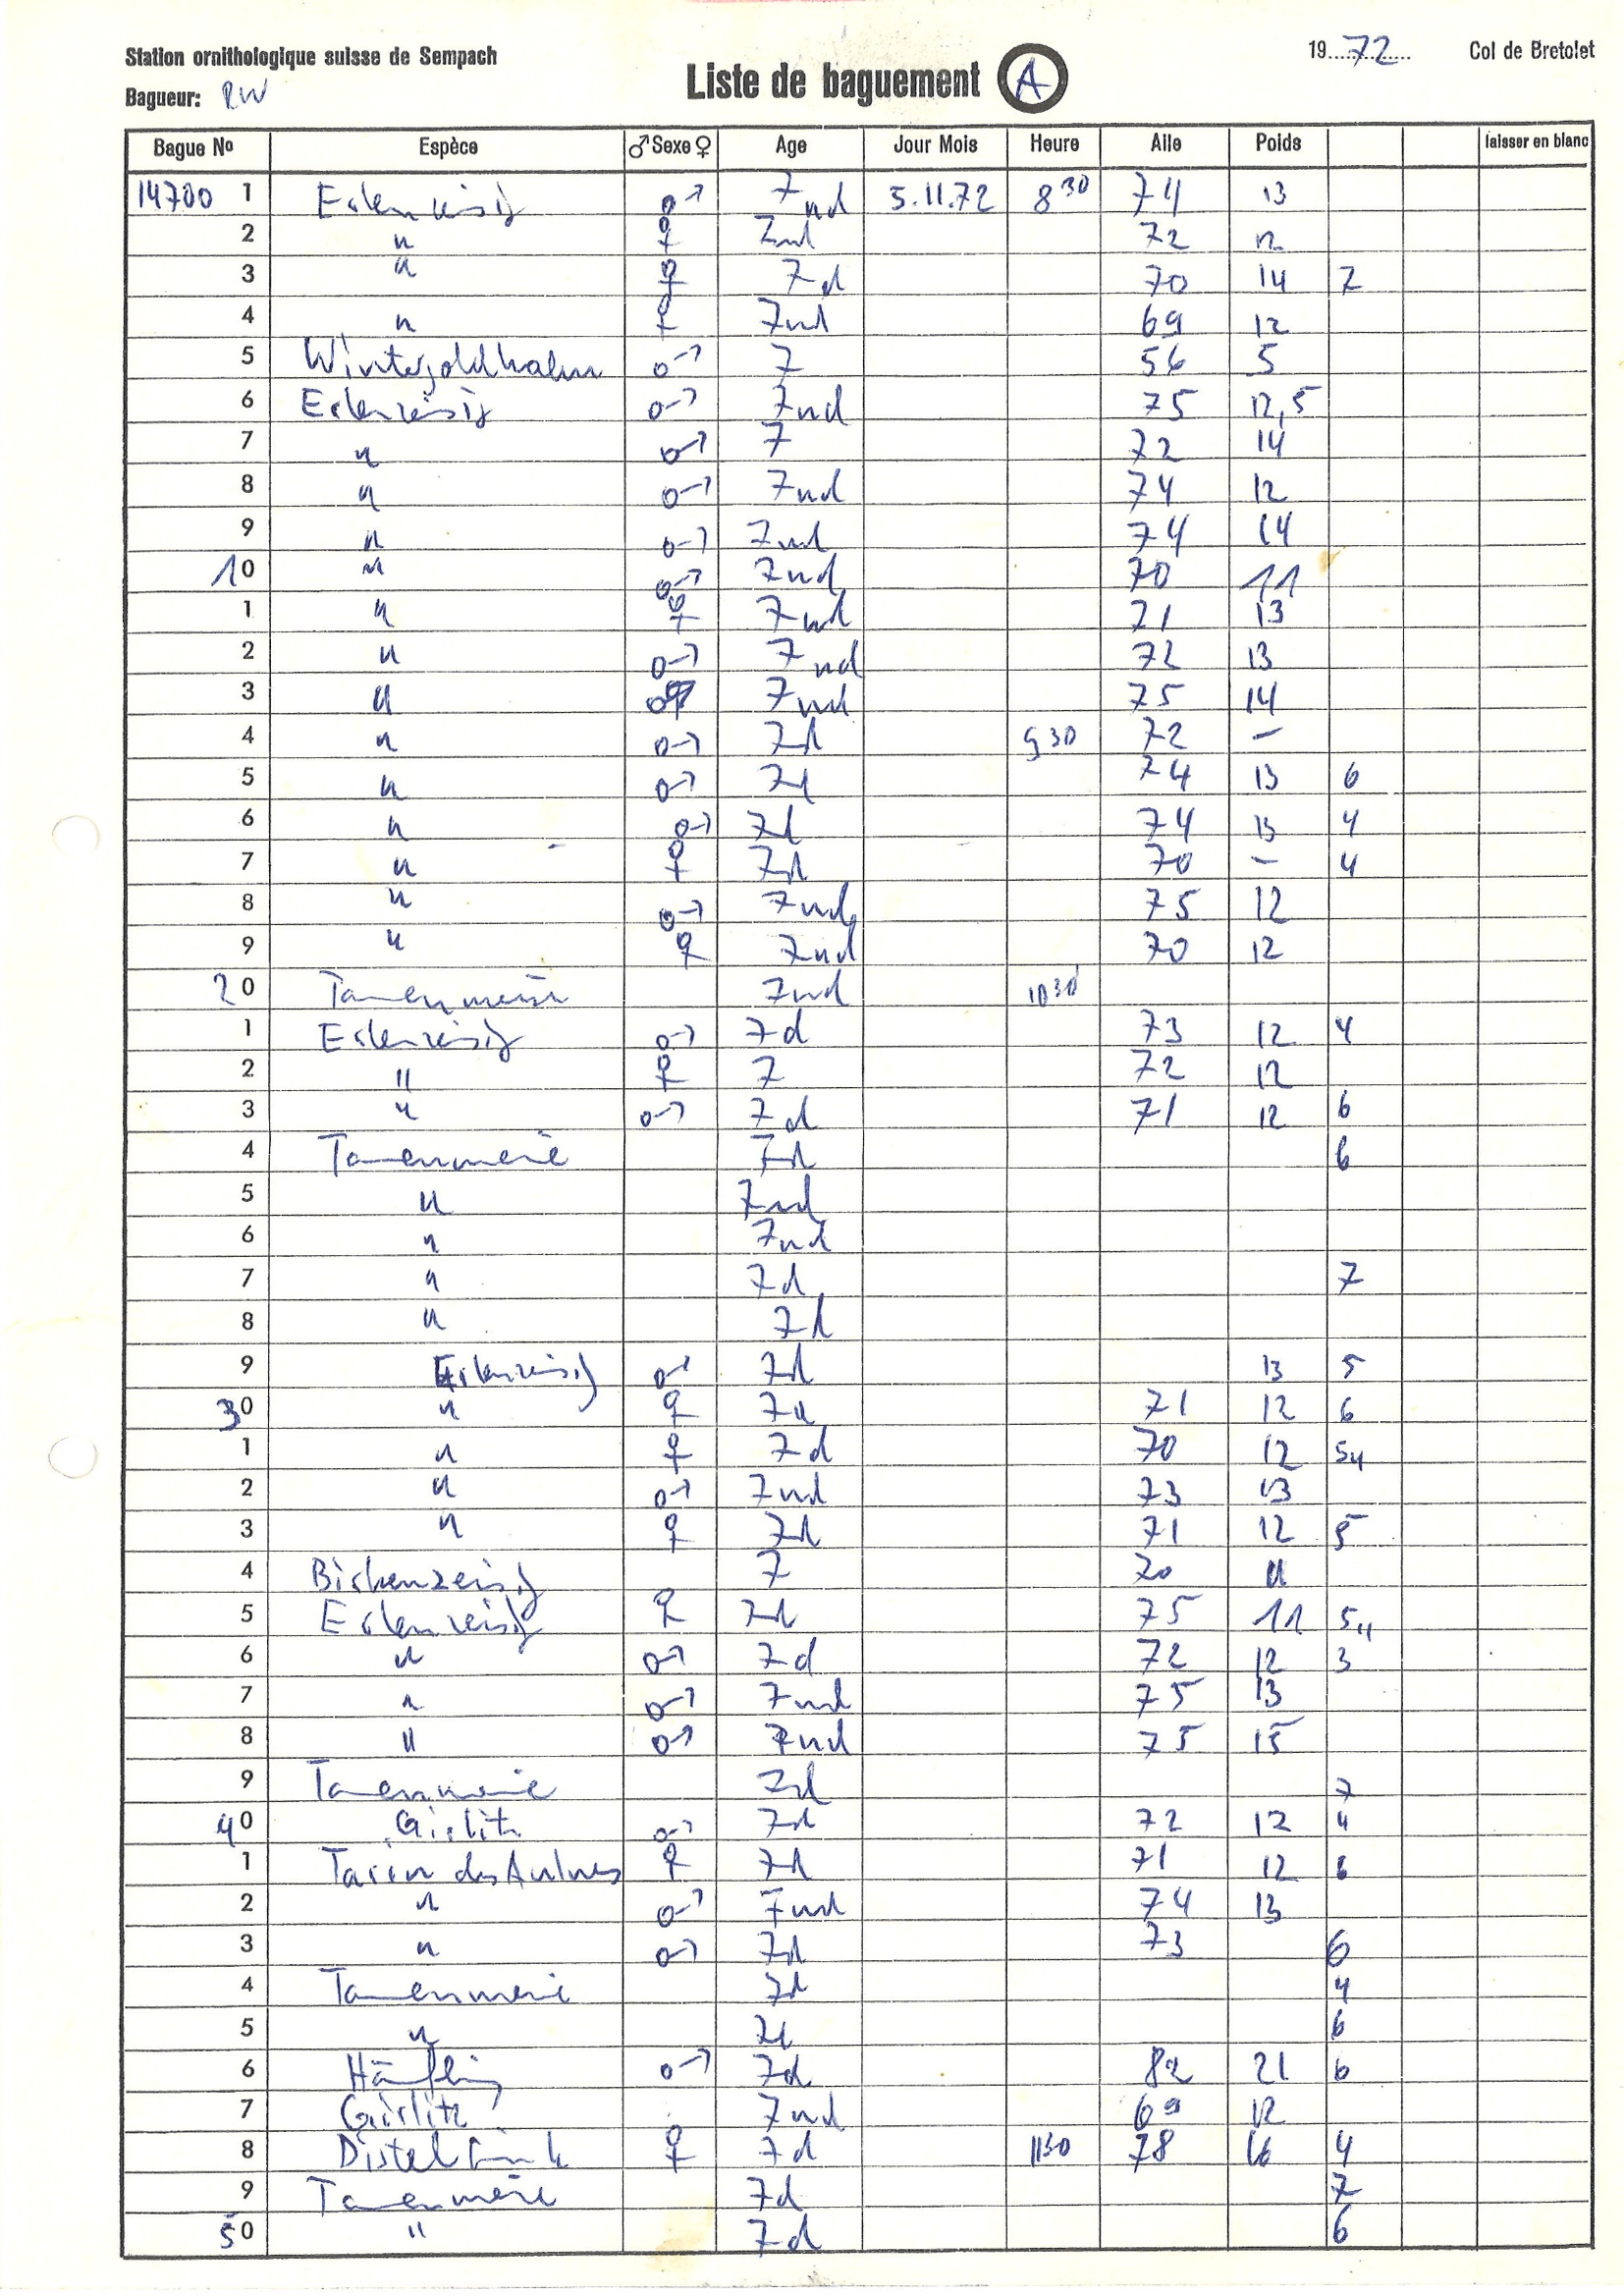 Station ornithologique suisse de Sempach
19 72 Col de Bretolet
Liste de baguement A
Bagueur: RW
Bague No Espèce ♂ Sexe ♀ Age Jour Mois Heure Aile Poids laisser en blanc
14700 1 Erlenzeisig ♂ 7nd 5.11.72 8 30 74 13
2 " ♀ 7nd 72 12
3 " ♀ 7d 70 14 7
4 " ♀ 7nd 69 12
5 Wintergoldhahn ♂ 7 56 5
6 Erlenzeisig ♂ 7nd 75 12,5
7 " ♂ 7 72 14
8 " ♂ 7nd 74 12
9 " ♂ 7nd 74 14
10 " ♂ 7nd 70 11
1 " ♀ 7nd 71 13
2 " ♂ 7nd 72 13
3 " 7nd 75 14
4 " ♂ 7d 9 30 72 –
5 " ♂ 7d 74 13 6
6 " ♂ 7d 74 13 4
7 " ♀ 7d 70 – 4
8 " ♂ 7nd 75 12
9 " ♀ 7nd 70 12
20 Tannenmeise 7nd 10 30
1 Erlenzeisig ♂ 7d 73 12 4
2 " ♀ 7 72 12
3 " ♂ 7d 71 12 6
4 Tannenmeise 7d 6
5 " 7nd
6 " 7nd
7 " 7d 7
8 " 7d
9 Erlenzeisig ♂ 7d 13 5
30 " ♀ 7d 71 12 6
1 " ♀ 7d 70 12 54
2 " ♂ 7nd 73 13
3 " ♀ 7d 71 12 5
4 Birkenzeisig 7 70 11
5 Erlenzeisig ♀ 7d 75 11 54
6 " ♂ 7d 72 12 3
7 " ♂ 7nd 75 13
8 " ♂ 7nd 75 15
9 Tannenmeise 7d 7
40 Girlitz ♂ 7d 72 12 4
1 Tarin des Aulnes ♀ 7d 71 12 6
2 " ♂ 7nd 74 13
3 " ♂ 7d 73 6
4 Tannenmeise 7d 4
5 " 7d 6
6 Hänfling ♂ 7d 82 21 6
7 Girlitz 7nd 69 12
8 Distelfink ♀ 7d 1130 78 16 4
9 Tannenmeise 7d 7
50 " 7d 6